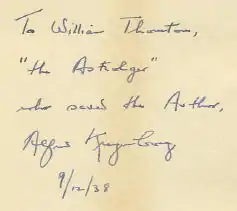 To William Thornton,
"the Astrolger"
who saved the Author,
Alfred Kreymborg
9/12/38